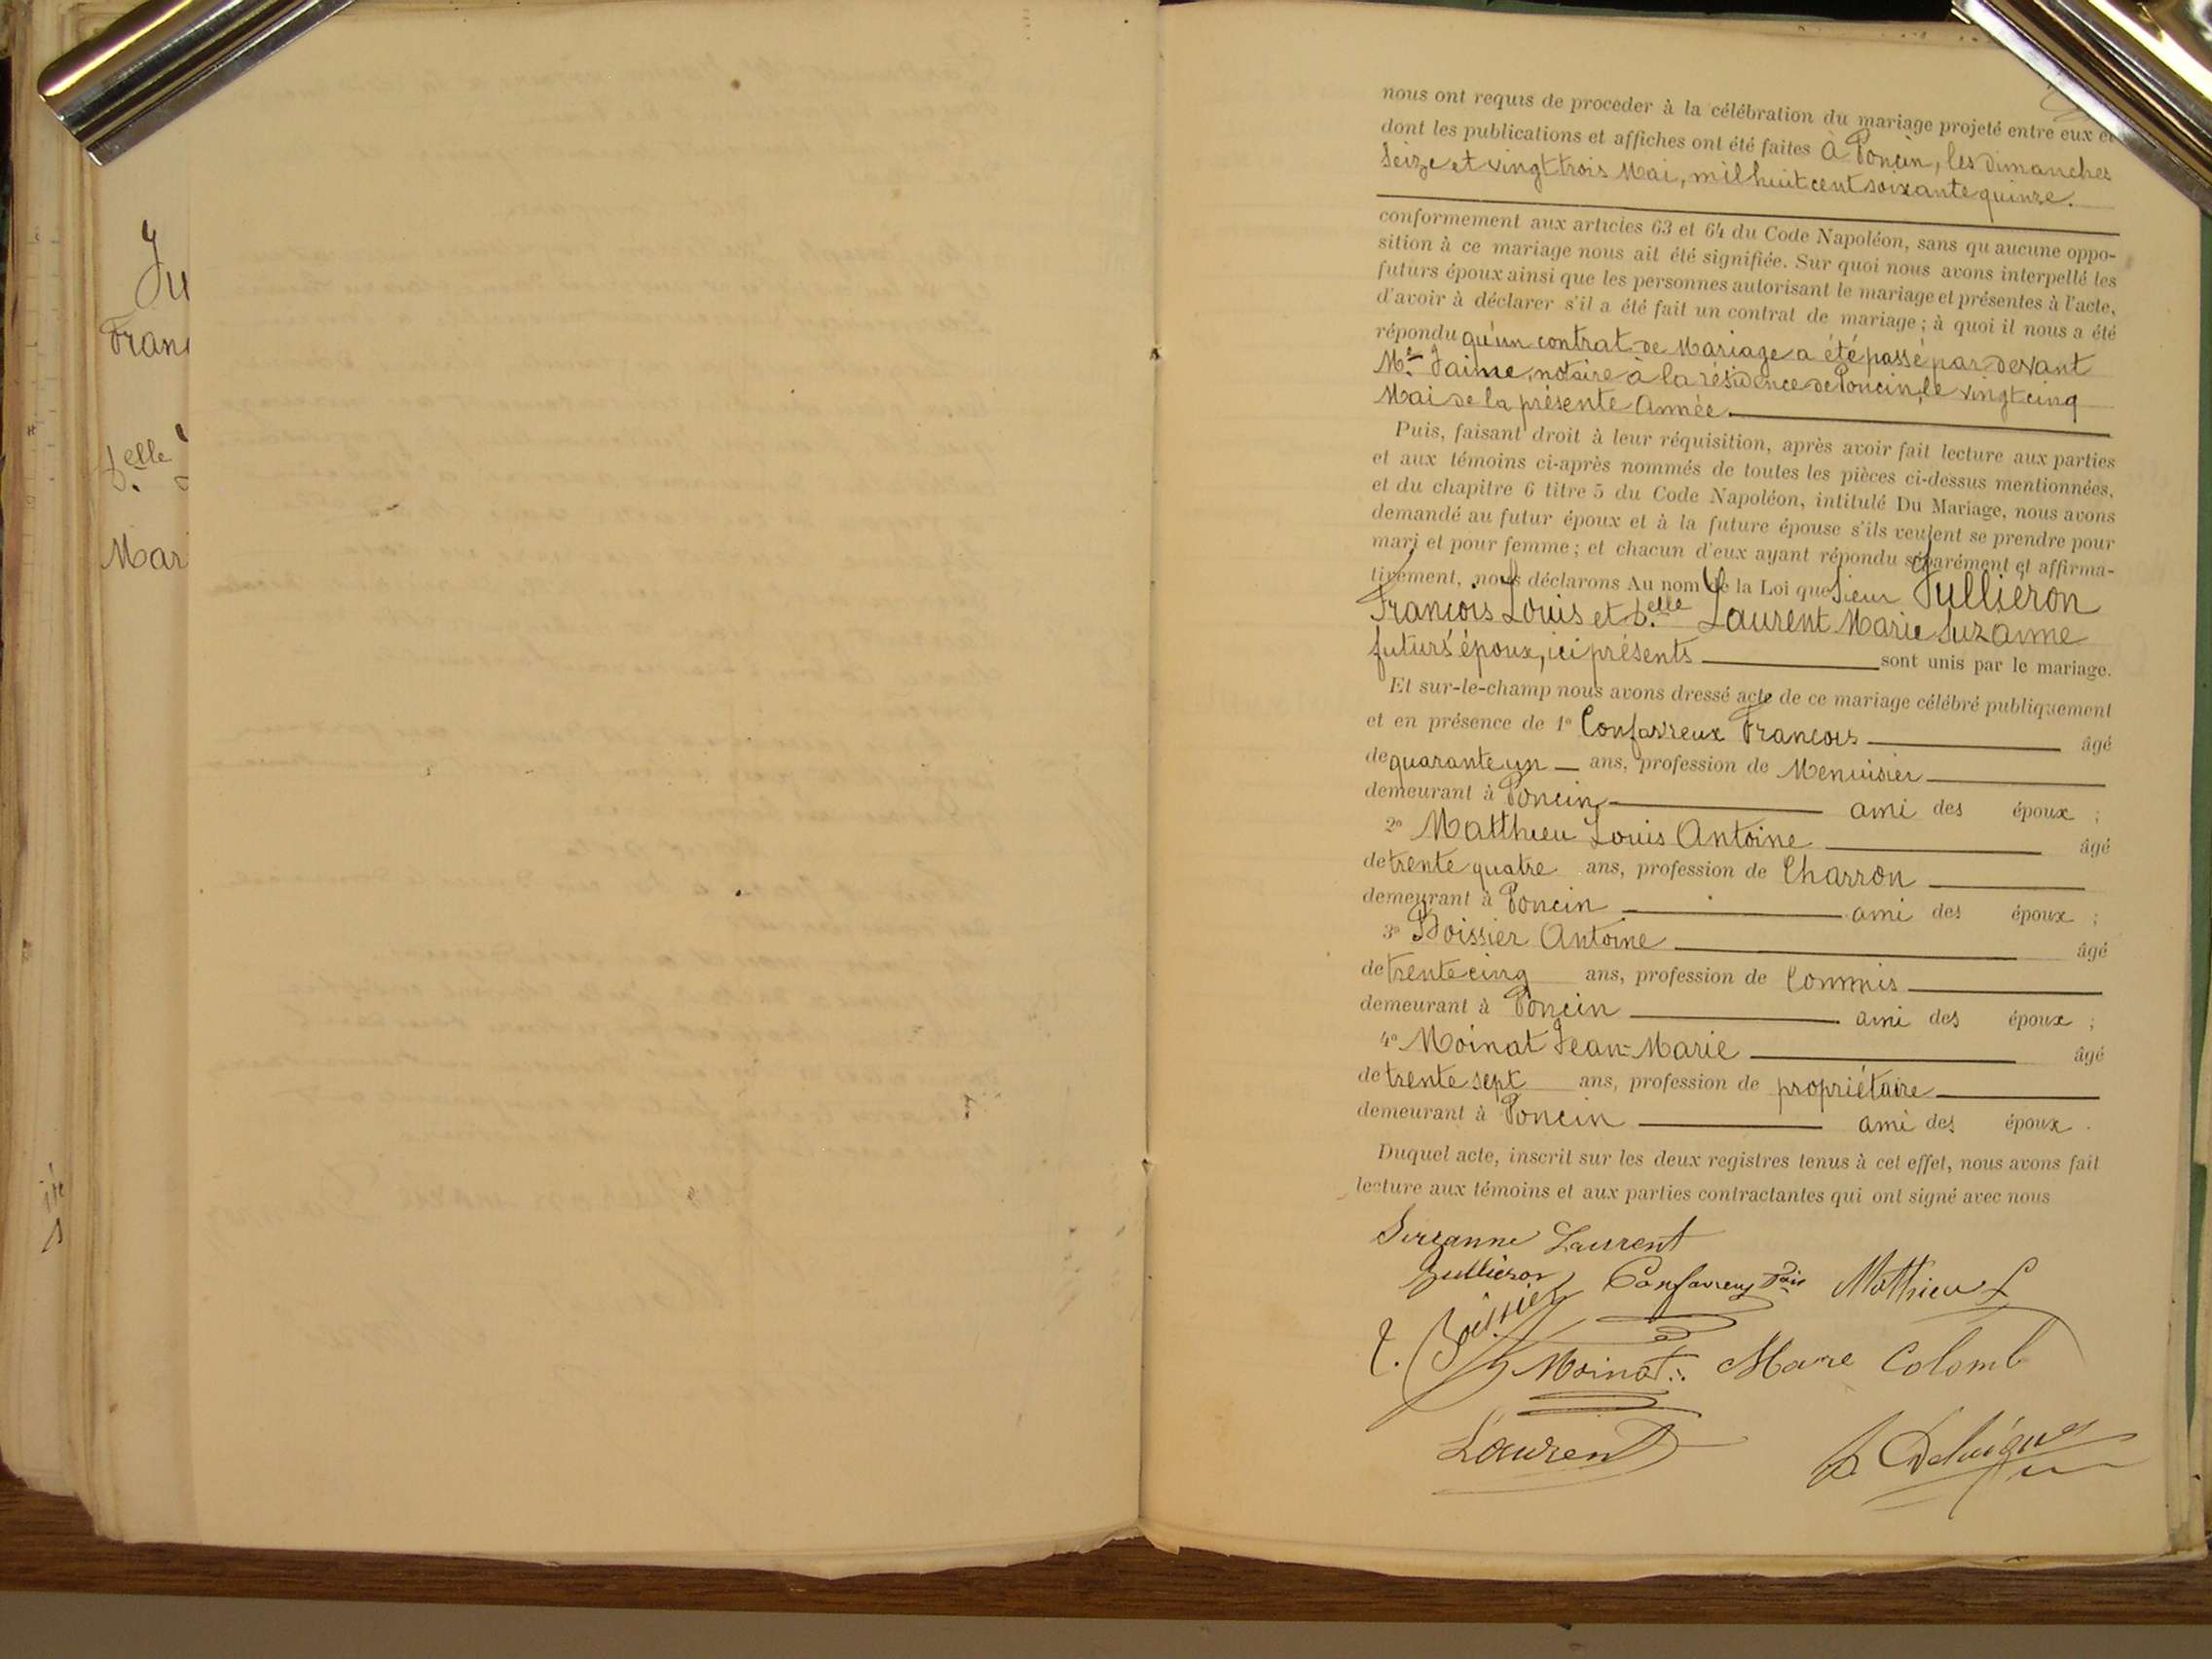 Ju
Fran
D.elle
Mar
nous ont requis de proceder à la célébration du mariage projeté entre eux et
dont les publications et affiches ont été faites à Poncin, les dimanches
Seize et vingt trois Mai, mil huit cent soixante quinze.
conformement aux articles 63 et 64 du Code Napoléon, sans qu'aucune oppo-
sition à ce mariage nous ait été signifiée. Sur quoi nous avons interpellé les
futurs époux ainsi que les personnes autorisant le mariage et présentes à l'acte,
d'avoir à déclarer s'il a été fait un contrat de mariage ; à quoi il nous a été
répondu qu'un contrat de Mariage a été passé par devant
Me. Jaime, notaire à la résidence de Poncin, le vingt cinq
Mai de la présente Année.
Puis, faisant droit à leur réquisition, après avoir fait lecture aux parties
et aux témoins ci-après nommés de toutes les pièces ci-dessus mentionnées,
et du chapitre 6 titre 5 du Code Napoléon, intitulé Du Mariage, nous avons
demandé au futur époux et à la future épouse s'ils veulent se prendre pour
mari et pour femme ; et chacun d'eux ayant répondu séparément et affirma-
tivement, nous déclarons Au nom de la Loi que Sieur Jullieron
François Louis et D.elle Laurent Marie Suzanne
futurs époux, ici présents sont unis par le mariage.
Et sur-le-champ nous avons dressé acte de ce mariage célébré publiquement
et en présence de 1° Confavreux François âgé
de quarante un ans, profession de Menuisier
demeurant à Poncin ami des époux ;
2° Matthieu Louis Antoine âgé
de trente quatre ans, profession de Charron
demeurant à Poncin ami des époux ;
3° Boissier Antoine âgé
de trente cinq ans, profession de Commis
demeurant à Poncin ami des époux ;
4° Moinat Jean-Marie âgé
de trente sept ans, profession de propriétaire
demeurant à Poncin ami des époux .
Duquel acte, inscrit sur les deux registres tenus à cet effet, nous avons fait
lecture aux témoins et aux parties contractantes qui ont signé avec nous
Suzanne Laurent
Jullieron Confavreux Matthieu L
Boissier
Moinat Marie Colomb
Laurent